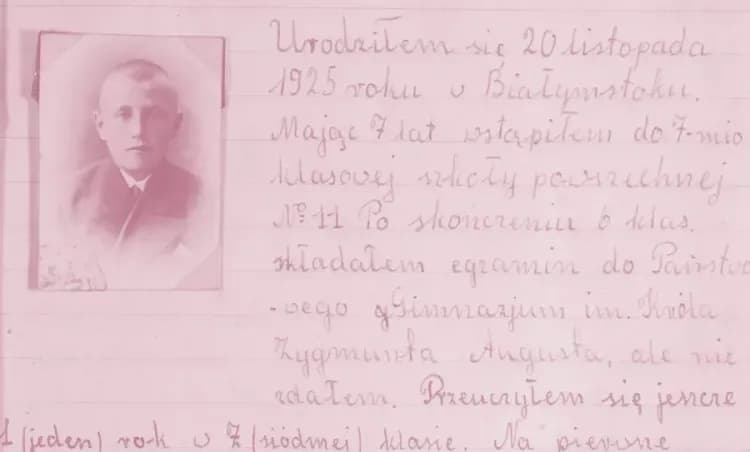 Urodziłem się 20 listopada
1925 roku w Białymstoku.
Mając 7 lat wstąpiłem do 7-mio
klasowej szkoły powszechnej
№ 11 Po skończeniu 6 klas.
składałem egzamin do Państwo
-wego gGimnazjum im. Króla
Zygmunta Augusta, ale nie
zdałem. Przeuczyłem się jeszcze
1 (jeden) rok w 7 (siódmej) klasie. Na pierwsze